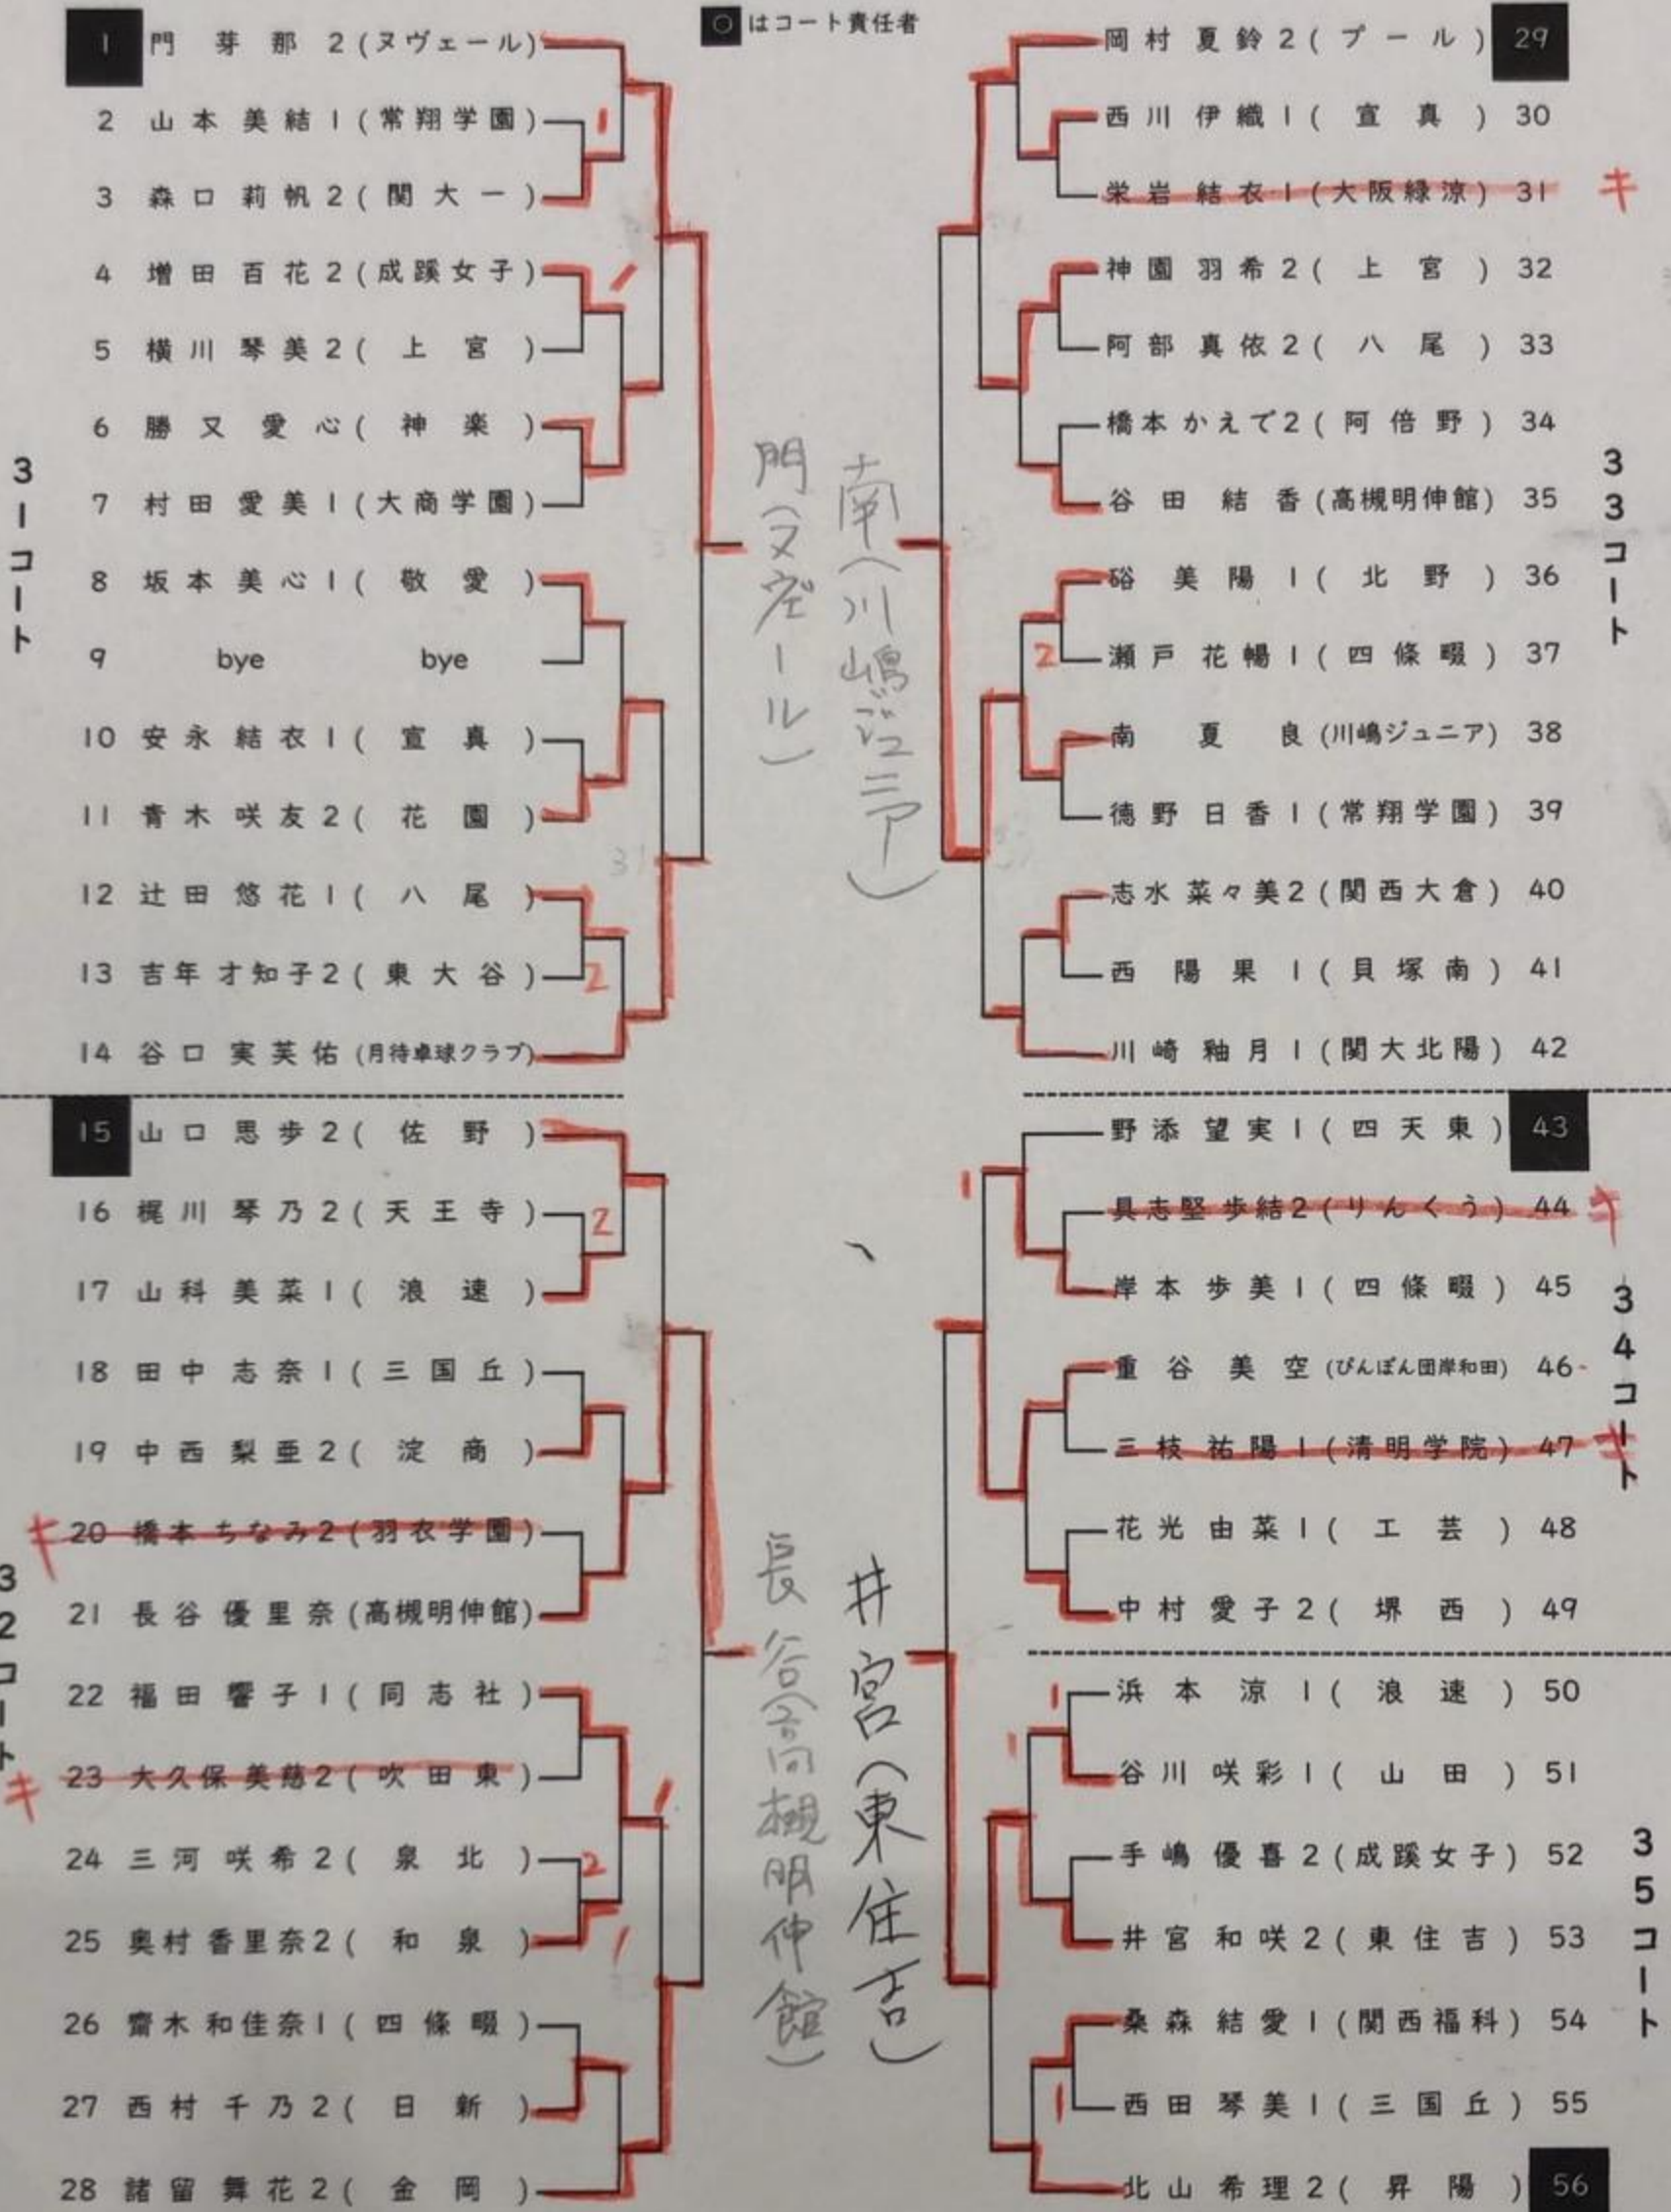 ○はコート責任者
1 門芽那2(ヌヴェール)
2 山本美結1(常翔学園)
1
3 森口莉帆2(関大一)
4 増田百花2(成蹊女子)
5 横川琴美2(上宮)
6 勝又愛心(神楽)
7 村田愛美1(大商学園)
8 坂本美心1(敬愛)
9 bye bye
10 安永結衣1(宣真)
11 青木咲友2(花園)
12 辻田悠花1(八尾)
13 吉年才知子2(東大谷)
2
14 谷口実芙佑(月待卓球クラブ)
31コート
門(ヌヴェール)
15 山口思歩2(佐野)
16 梶川琴乃2(天王寺)
2
17 山科美菜1(浪速)
18 田中志奈1(三国丘)
19 中西梨亜2(淀商)
キ 20 橋本ちなみ2(羽衣学園)
21 長谷優里奈(高槻明伸館)
22 福田響子1(同志社)
キ 23 大久保美慈2(吹田東)
24 三河咲希2(泉北)
2
25 奥村香里奈2(和泉)
26 齋木和佳奈1(四條畷)
27 西村千乃2(日新)
28 諸留舞花2(金岡)
32コート
長谷(高槻明伸館)
岡村夏鈴2(プール) 29
西川伊織1(宣真) 30
栄岩結衣1(大阪緑涼) 31 キ
神園羽希2(上宮) 32
阿部真依2(八尾) 33
橋本かえで2(阿倍野) 34
谷田結香(高槻明伸館) 35
硲美陽1(北野) 36
2
瀬戸花暢1(四條畷) 37
南夏良(川嶋ジュニア) 38
徳野日香1(常翔学園) 39
志水菜々美2(関西大倉) 40
西陽果1(貝塚南) 41
川崎釉月1(関大北陽) 42
33コート
南(川嶋ジュニア)
野添望実1(四天東) 43
1
具志堅歩結2(りんくう) 44 キ
岸本歩美1(四條畷) 45
重谷美空(ぴんぽん団岸和田) 46
三枝祐陽1(清明学院) 47 キ
花光由菜1(工芸) 48
中村愛子2(堺西) 49
34コート
浜本涼1(浪速) 50
1
1
谷川咲彩1(山田) 51
手嶋優喜2(成蹊女子) 52
井宮和咲2(東住吉) 53
桑森結愛1(関西福科) 54
西田琴美1(三国丘) 55
1
北山希理2(昇陽) 56
35コート
井宮(東住吉)